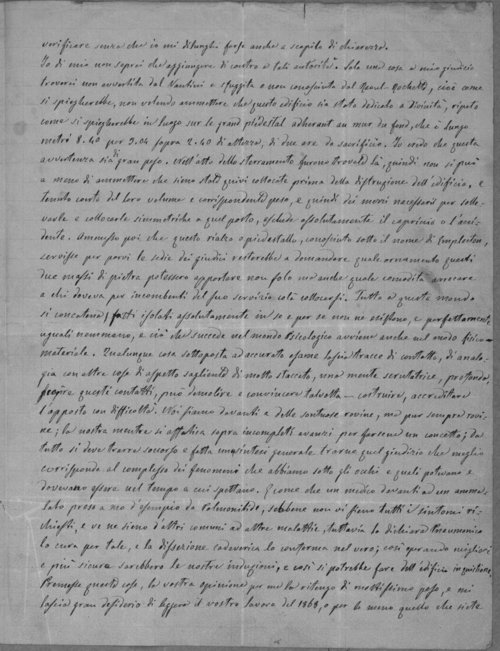 verificare senza che io mi dilunghi forse anche a scapito di chiarezza.
Io di mio non saprei che aggiungere di contro a tali autorità. Solo una cosa a mio giudizio
troverei non avvertita dal Nantini e sfuggita o non conosciuta dal Raoul-Rochette, cioè come
si spiegherebbe, non volendo ammettere che questo edificio sia stato dedicato a Divinità, ripeto
come si spiegherebbe in luogo sur le grand piédestal adherant au mur du fond, che è lungo
metri 8.40 per 3.04 sopra 2.40 di altezza, di due are da sacrificio. Io credo che questa
avvertenza sia di gran peso. Nell'atto dello sterramento furono trovate là, quindi non si può
a meno di ammettere che sieno state quivi collocate prima della distruzione dell'edificio, e
tenuto conto del loro volume e corrispondente peso, e quindi dei mezzi necessari per solle-
varle e collocarle simmetriche a quel posto, esclude assolutamente il capriccio o l'acci-
dente. Ammesso poi che questo rialzo o piedestallo, conosciuto sotto il nome di Emplecton,
servisse per porvi le sedie dei giudici resterebbe a domandare quale ornamento questi
due massi di pietra potessero apportare non solo ma anche quale comodità arrecare
a chi doveva per incombenti del suo servizio colà collocarsi. Tutto a questo mondo
si concatena; fatti isolati assolutamente in se e per se non ne esistono, e perfettamente
uguali nemmeno, e ciò che succede nel mondo Psicologico avviene anche nel modo fisico-
materiale. Qualunque cosa sottoposta ad accurato esame lascia tracce di contatto, di analo-
gia con altre cose di aspetto sagliente di molto staccato, una mente scrutatrice, profonda
scopre questi contatti, può demolire e convincere talvolta - costruire, accreditare
l'apposto con difficoltà. Noi siamo davanti a delle sontuose rovine, ma pur sempre rovi-
ne; la nostra mente si affatica sopra incompleti avanzi per farsene un concetto; da
tutto si deve trarre soccorso e fatta una sintesi generale trarne quel giudizio che meglio
corrisponde al complesso dei fenomeni che abbiamo sotto gli occhi e quali potevano e
dovevano essere nel tempo a cui spettano. E come che un medico davanti ad un amma-
lato preso a mo' d'esempio da Polmonitide, sebbene non vi siano tutti i sintomi ri-
chiesti, e ve ne sieno d'altri comuni ad altre malattie, tuttavia lo dichiara Pneumonico
lo cura per tale, e la dissezione cadaverica lo conferma nel vero; così operando migliori
e più sicure sarebbero le nostre induzioni, e così si potrebbe fare dell'edificio in quistione.
Premesse queste cose, la vostra opinione per me la ritengo di moltissimo peso, e mi
lascia gran desiderio di leggere il vostro lavoro del 1868, o per lo meno quello che siete